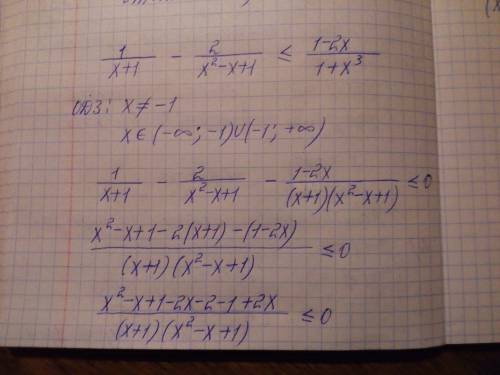 1/(x+1) - 2/(x²-x+1) ≤ (1-2x)/(1+x³)
ОДЗ: x ≠ -1
x ∈ (-∞; -1)∪(-1; +∞)
1/(x+1) - 2/(x²-x+1) - (1-2x)/((x+1)(x²-x+1)) ≤ 0
(x²-x+1-2(x+1)-(1-2x))/((x+1)(x²-x+1)) ≤ 0
(x²-x+1-2x-2-1+2x)/((x+1)(x²-x+1)) ≤ 0